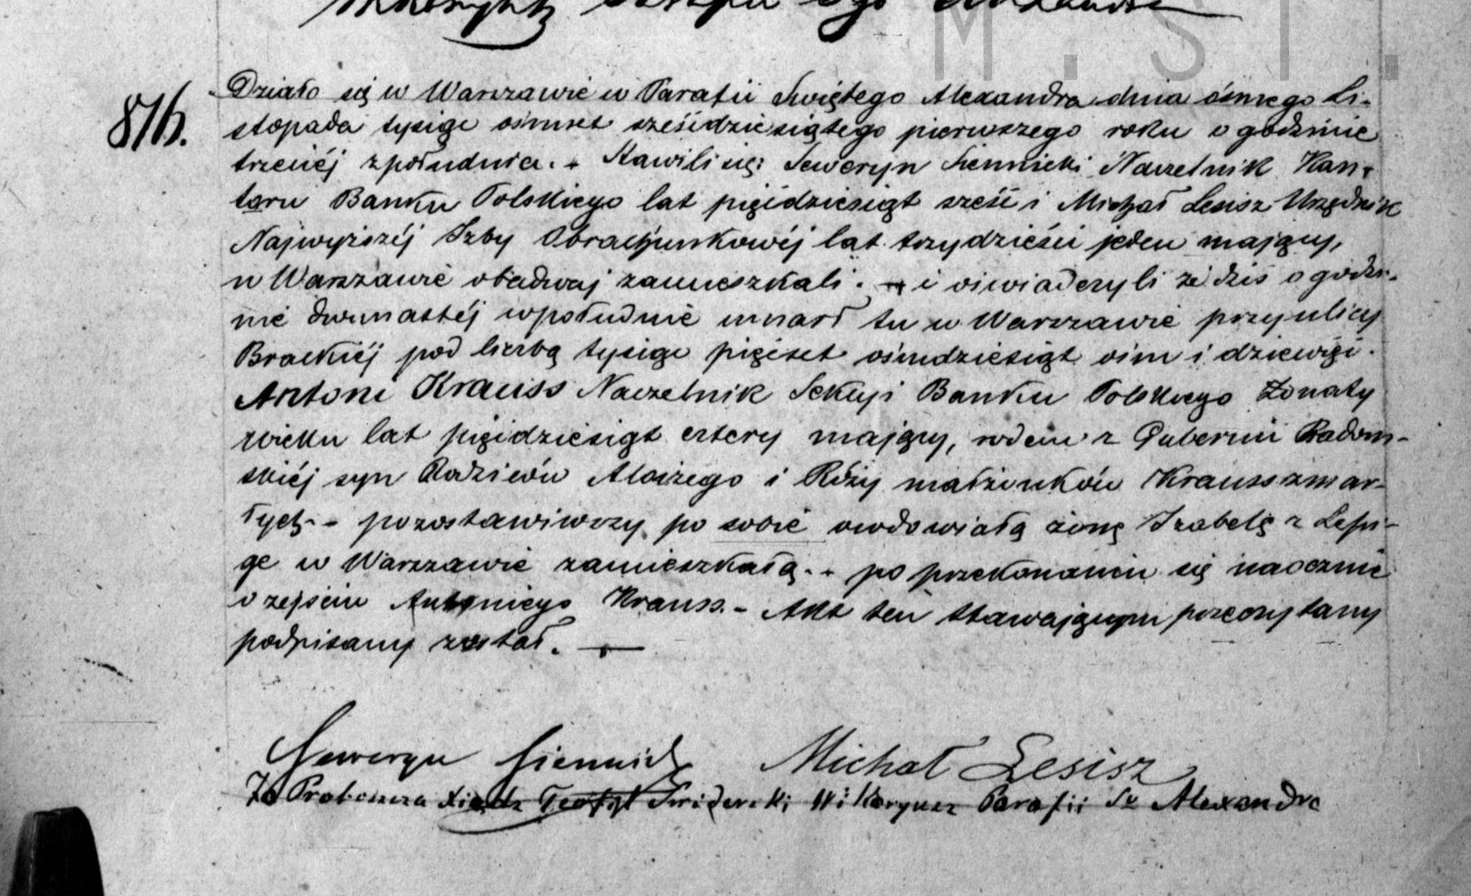 Wikaryusz Parafii Sgo Alexandra
M.ST.
816.
Działo się w Warszawie w Parafii Swiętego Alexandra dnia ósmego Li-
stopada tysiąc ośmset sześćdziesiątego pierwszego roku o godzinie
trzeciéj z południa. - Stawili się: Seweryn Siennicki Naczelnik Kan-
toru Banku Polskiego lat pięćdziesiąt sześć i Michał Lesisz Urzędnik
Najwyższéj Izby Obrachunkowéj lat trzydzieści jeden mający,
w Warszawie obadwaj zamieszkali. - i oświadczyli że dziś o godzi-
nie dwunastéj w południe umarł tu w Warszawie przy ulicy
Brackiéj pod liczbą tysiąc pięćset ośmdziesiąt ośm i dziewięć.
Antoni Krauss Naczelnik Sekcyi Banku Polskiego Żonaty
wieku lat pięćdziesiąt cztery mający, rodem z Gubernii Radom-
skiéj syn Rodziców Aloizego i Róży małżonków Krauss zmar-
łych - pozostawiwszy po sobie owdowiałą żonę Izabelę z Lesi-
ge w Warszawie zamieszkałą. - po przekonaniu się naocznie
o zejściu Antoniego Krauss. - Akt ten stawającym przeczytany
podpisany został. -
Seweryn Siennicki Michał Lesisz
Za Proboszcza Xiądz Teofil Swiderski Wikaryusz Parafii Sw Alexandra